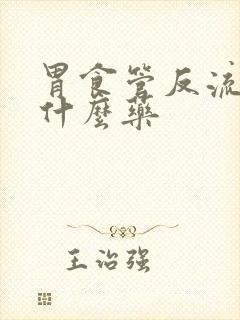 胃食管反流
什麼藥
王治强